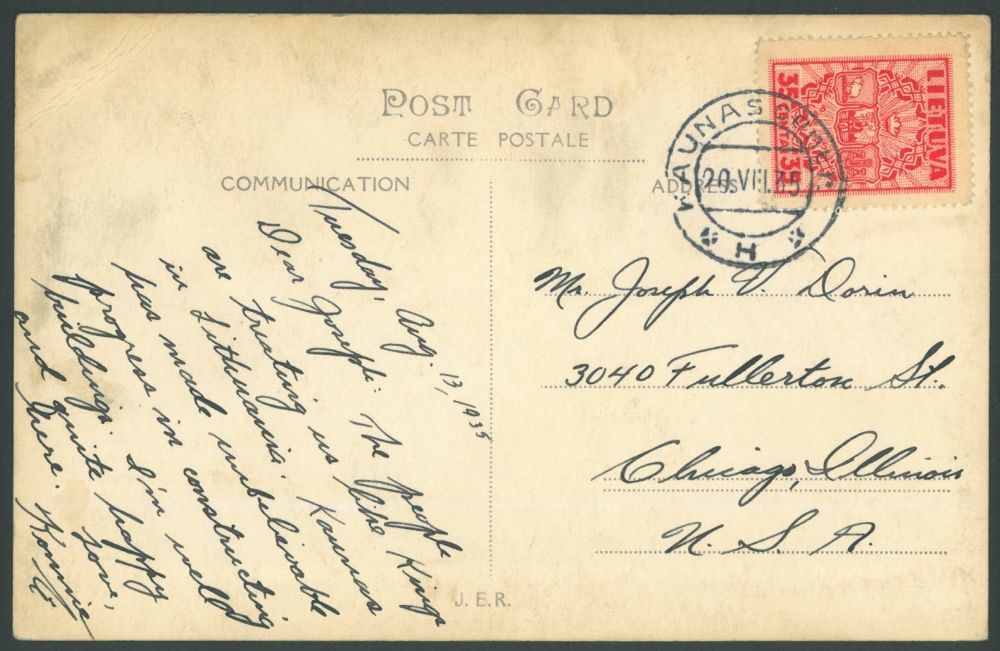 POST CARD
CARTE POSTALE
COMMUNICATION
ADDRESS
LIETUVA
35 35
KAUNAS
20.VIII.35
H
Tuesday, Aug. 13, 1935
Dear Joseph: The people
are treating us like Kings
in Lithuania. Kaunas
has made unbelievable
progress in constructing
buildings. I'm well
and quite happy
here. Love,
Mr. Joseph V. Dorin
3040 Fullerton St.
Chicago, Illinois
U. S. A.
J.E.R.